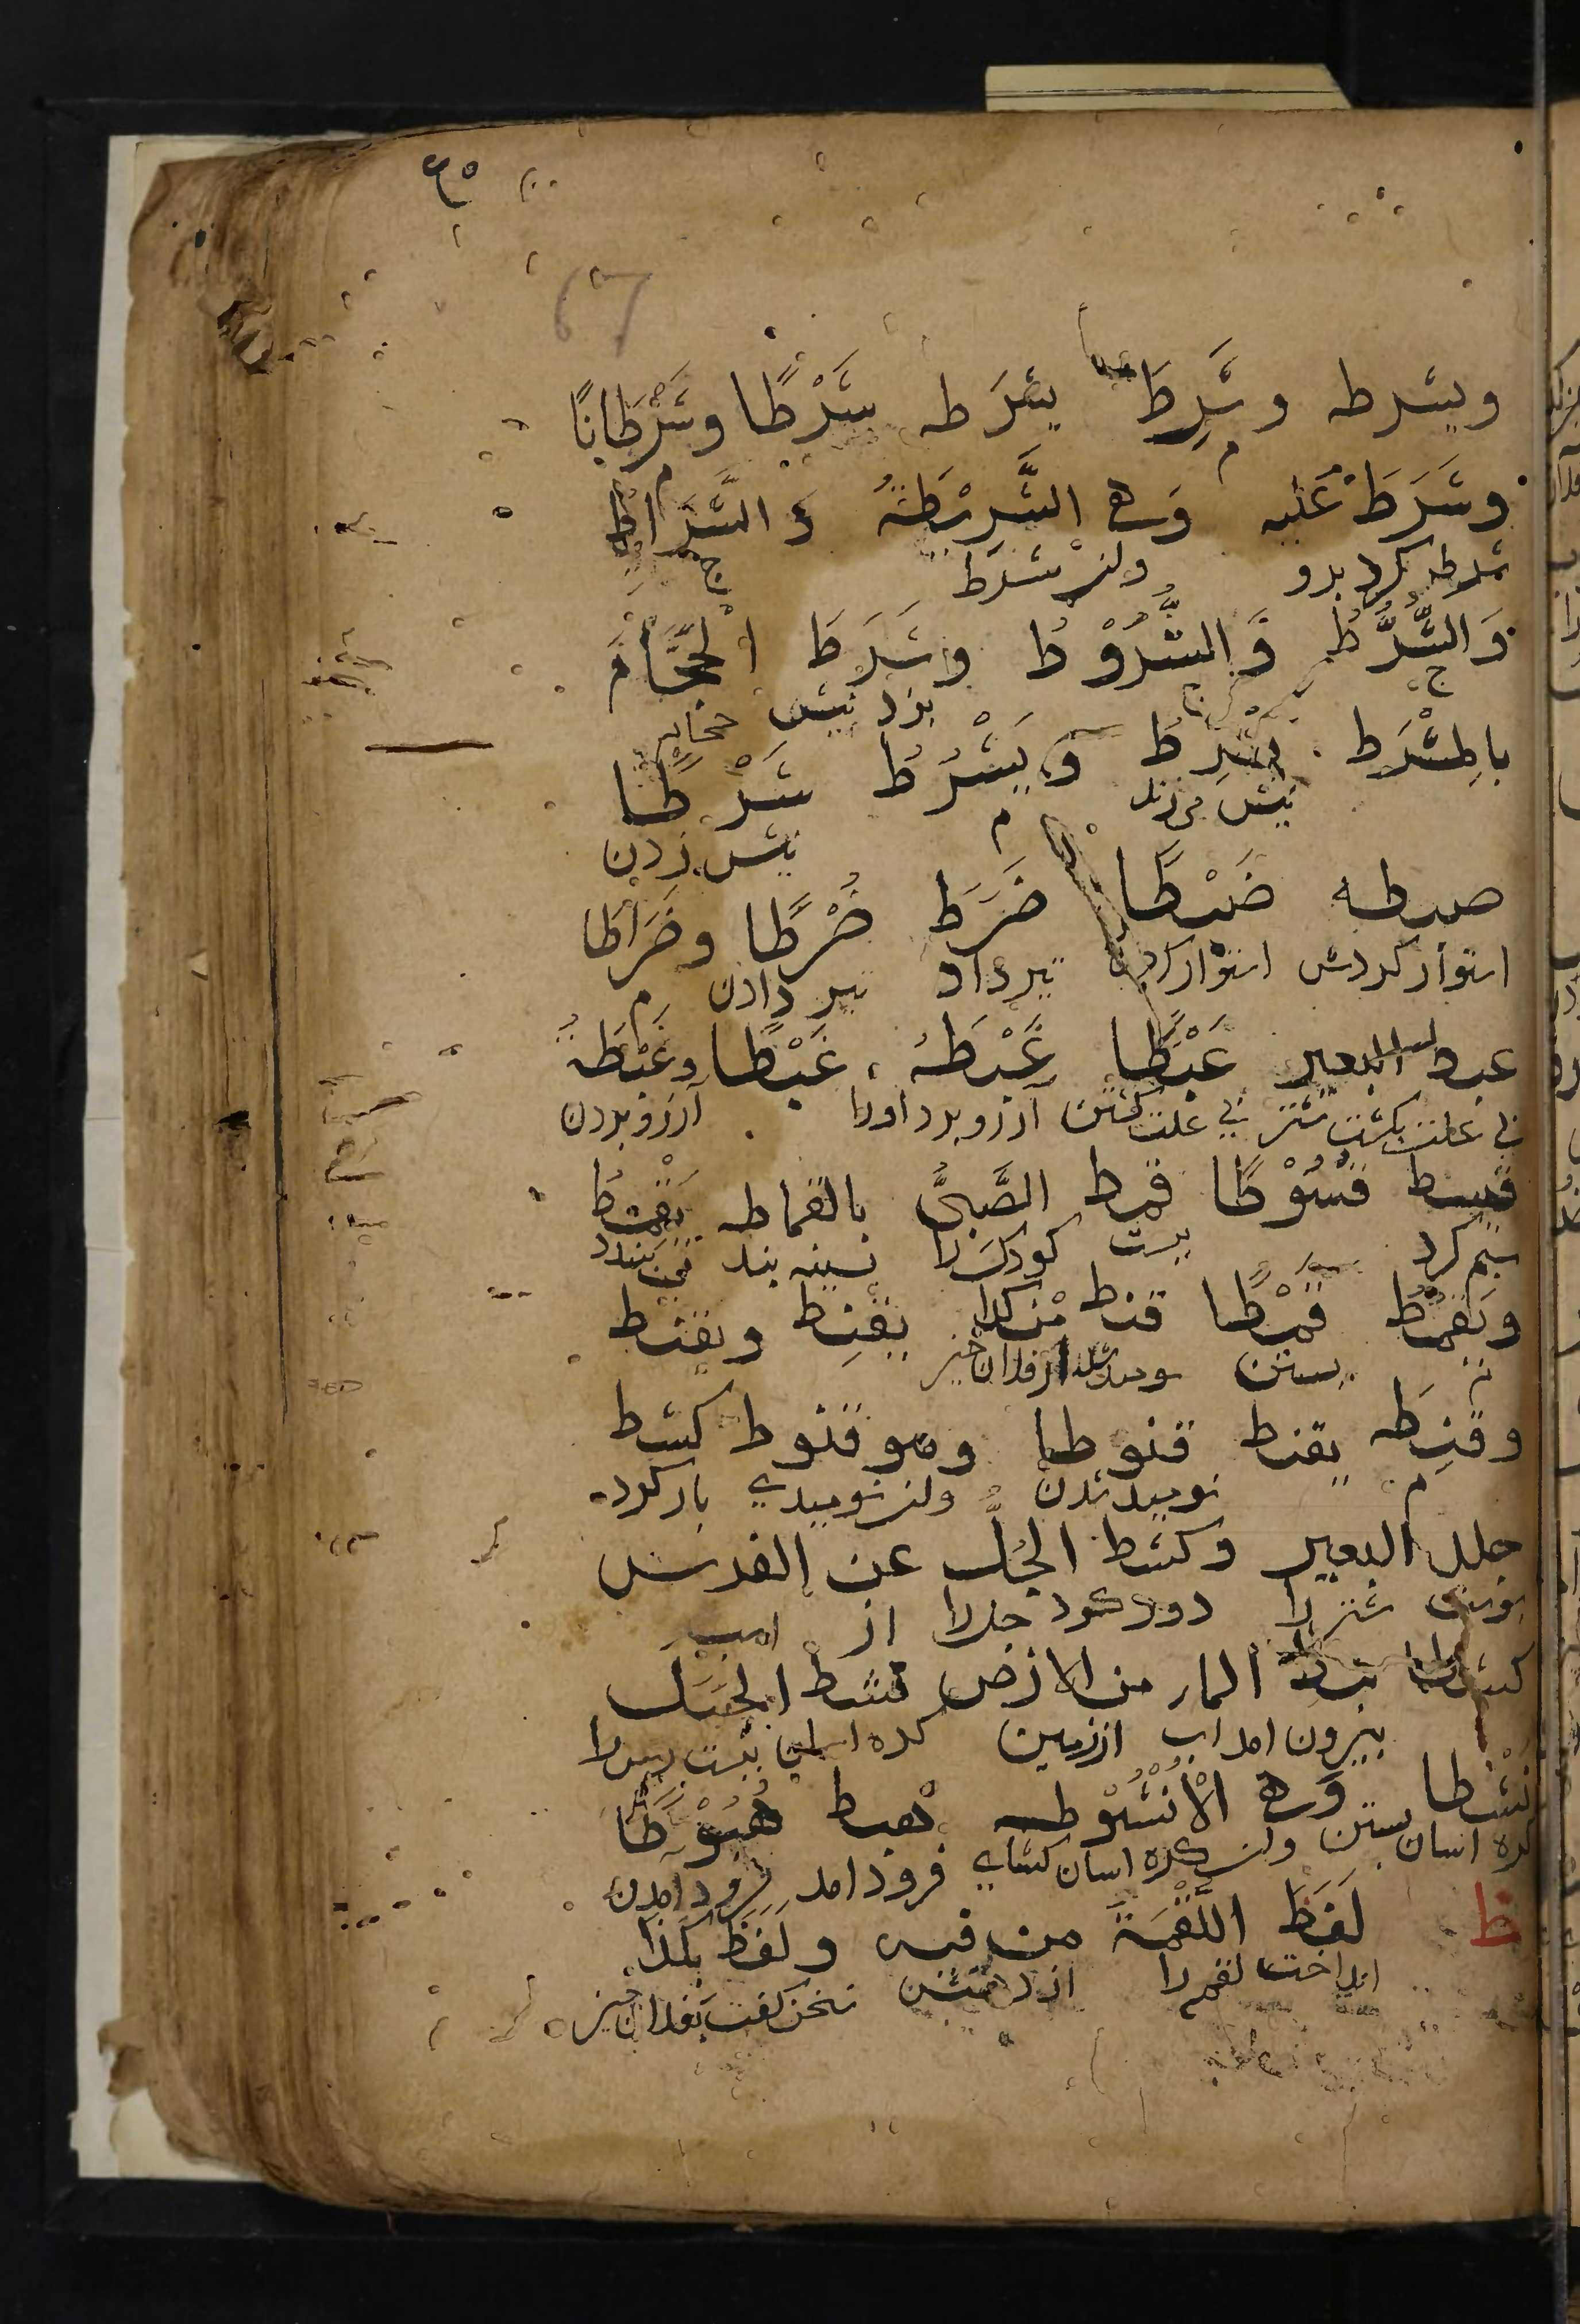 ٦٥
67
ويسرطه وسَرِطَ يسْرَطه سَرْطًا وسَرَطَانًا
وشَرَطَ عَلَيه وَهى الشَّرِيْطَةُ وَ الشَّرَائِطُ
شرط كرد بدو ولنز شرط ج
وَالشَّرْطُ وَالشُّرُوْطُ وشَرَطَ الحَجَّامُ
ج بزد نيش حجام
بالمِشْرَطِ يَشْرِطُ وَيَشْرُطُ شَرْطًا
نيش مى زند م نيش زدن
ضبطه ضَبْطًا ضَرَطَ ضَرْطًا وضَرَاطا
استوار كردش استوار كردن تير داد تير دادن م
عبط البعير عَبْطًا غَبَطَهُ غَبْطًا وغِبْطَةً
بى علت بكشت شتر بى علت كشتن آرزو برد اورا آرزو بردن
قسط قُسُوْطًا قمط الصَّبِىَّ بالقماطه يَقْمِطُ
ستم كرد ببست كودك را بسينه بند مى بندد
ويَقْمُطُ قَمْطًا قنط من كذا يقنِط ويقنُط
م بستن نوميد شد از فلان خيز
وقنِطَ يقنط قنوطا وهو قنوط كشط
م نوميد شدن ولنز نوميدي باز كرد
جلد البعير وكشط الجُلَّ عن الفرس
پوست شتر را دور كرد جل را از اسب
كشطا نبط الماء من الارض نشط الحَبْل
بيرون امد اب از زمين كره اسان ببست رسن را
نَشْطا وَهى الْأُنْشُوْطه هبط هُبُوْطًا
كره اسان بستن ولنز كره اسان كشاي فرود امد فرود امدن
ظ لَفَظَ اللُّقْمَةَ من فيه ولَفَظَ بكذا
انداخت لقمه را از دهنش سخن كفت بفلان خيز